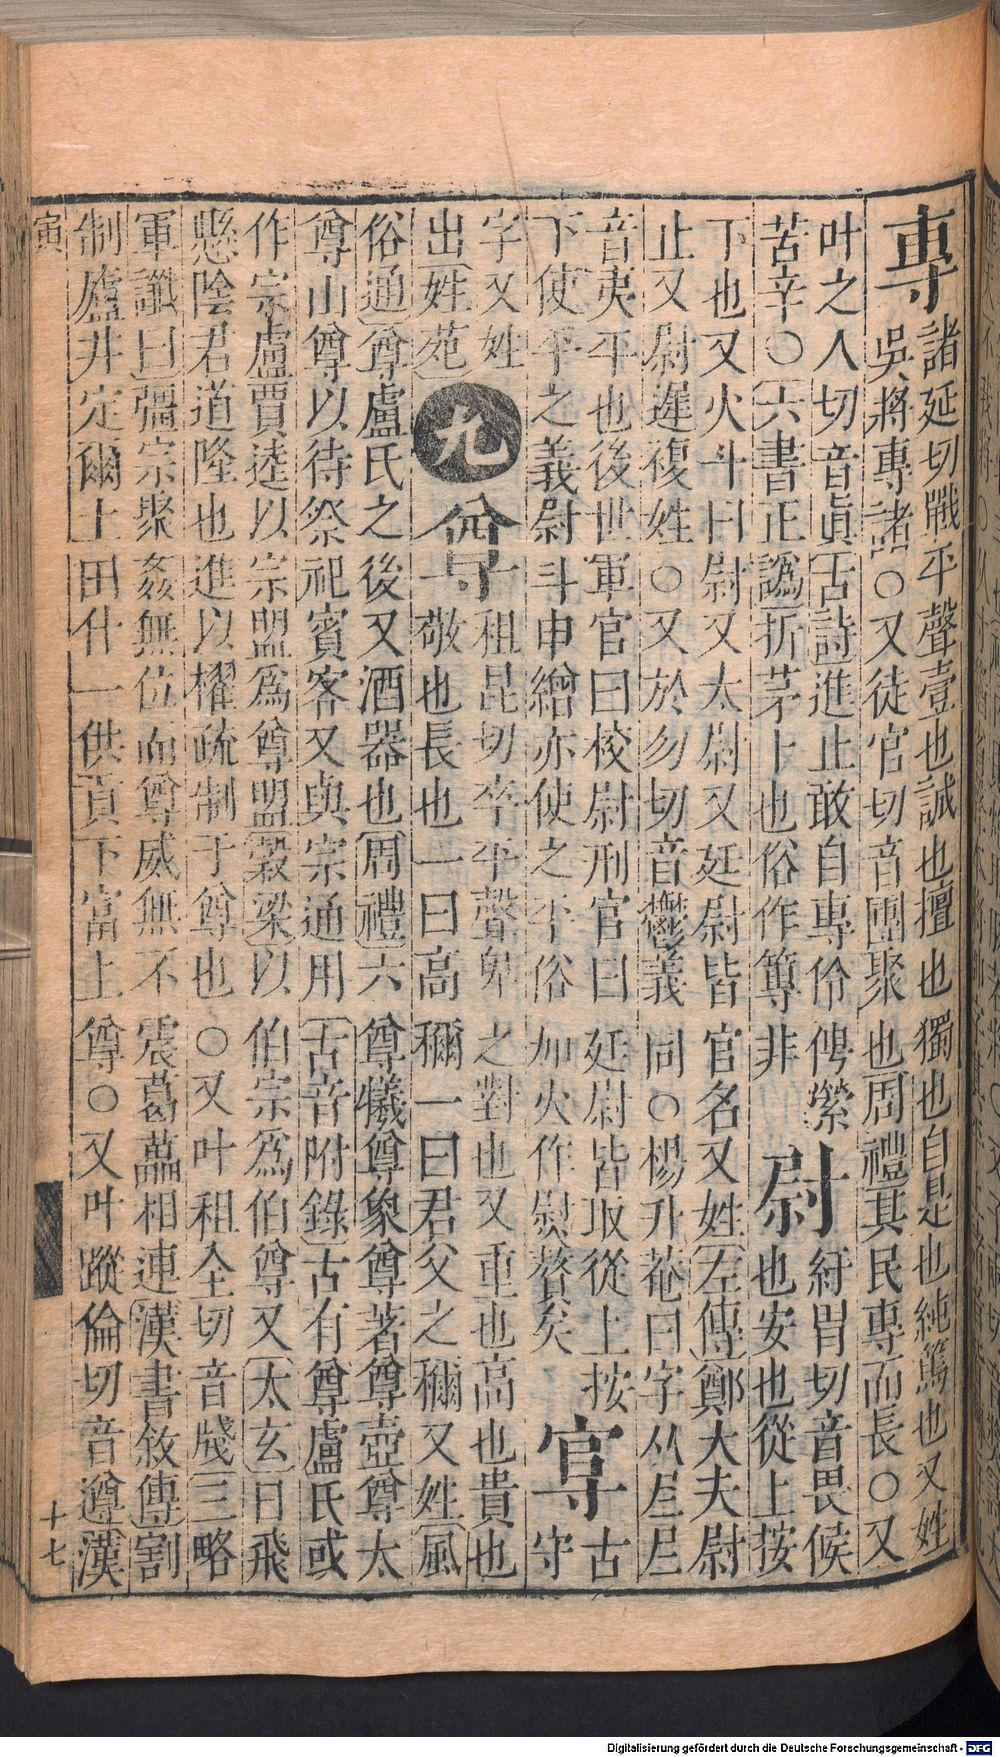 專諸延切戰平聲壹也誠也擅也獨也自是也純篤也又姓
吳將專諸○又徒官切音團聚也周禮其民專而長○又
叶之人切音真古詩進止敢自專伶俜縈
苦辛○六書正譌折茅卜也俗作等非
尉紆胃切音畏候
也安也從上按
下也又火斗曰尉又太尉又廷尉皆官名又姓左傳鄭大夫尉
止又尉遲複姓○又於勿切音鬱義同○楊升菴曰字从𡰥𡰥
音夷平也後世軍官曰校尉刑官曰廷尉皆取從上按
下使平之義尉斗申繒亦使之平俗加火作熨贅矣
㝁古
守
字又姓
出姓苑
九
尊祖昆切卒平聲卑之對也又重也高也貴也
一敬也長也一曰高稱一曰君父之稱又姓風
俗通尊盧氏之後又酒器也周禮六尊犧尊象尊著尊壺尊太
尊山尊以待祭祀賓客又與宗通用古音附錄古有尊盧氏或
作宗盧賈逵以宗盟爲尊盟榖梁以伯宗爲伯尊又太玄曰飛
懸陰君道隆也進以櫂疏制于尊也○又叶租全切音牋三略
軍讖曰彊宗聚姦無位而尊威無不震葛藟相連漢書敘傳割
制廬井定爾土田什一供貢下富上尊○又叶蹤倫切音遵漢
寅
十七
Digitalisierung gefördert durch die Deutsche Forschungsgemeinschaft - DFG